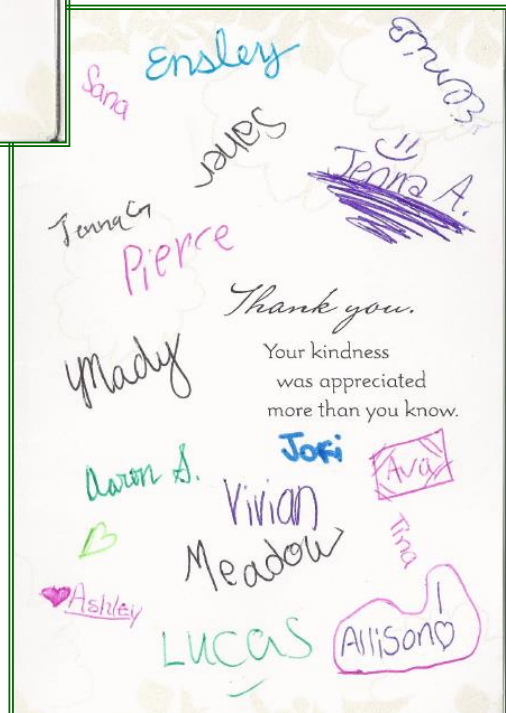 Ensley
Sana
Jenna A.
Jenna G
Pierce
Thank you.
Mady
Your kindness
was appreciated
more than you know.
Aaron S.
Ava
Vivian
Tina
Meadow
Ashley
Lucas
Allison